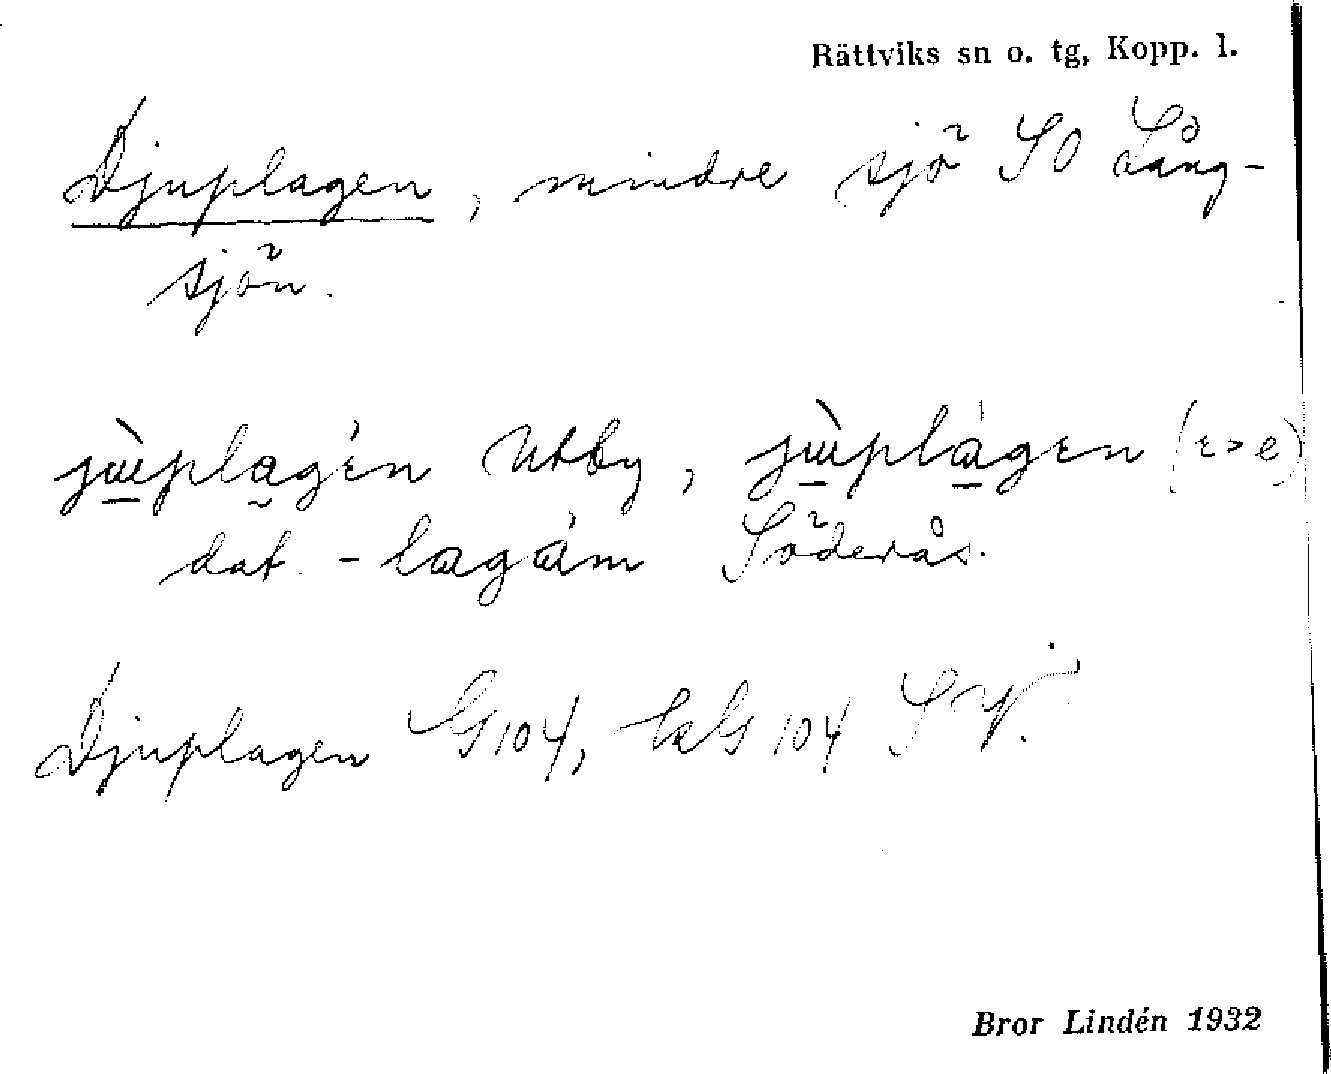 Rättviks sn o. tg, Kopp. l.
Djuplagen, mindre sjö SO Lång-
sjön.
Utby, (ɛ>e)
dat. -lagàm Söderås.
Djuplagen G104, 104 SV.
Bror Lindén 1932